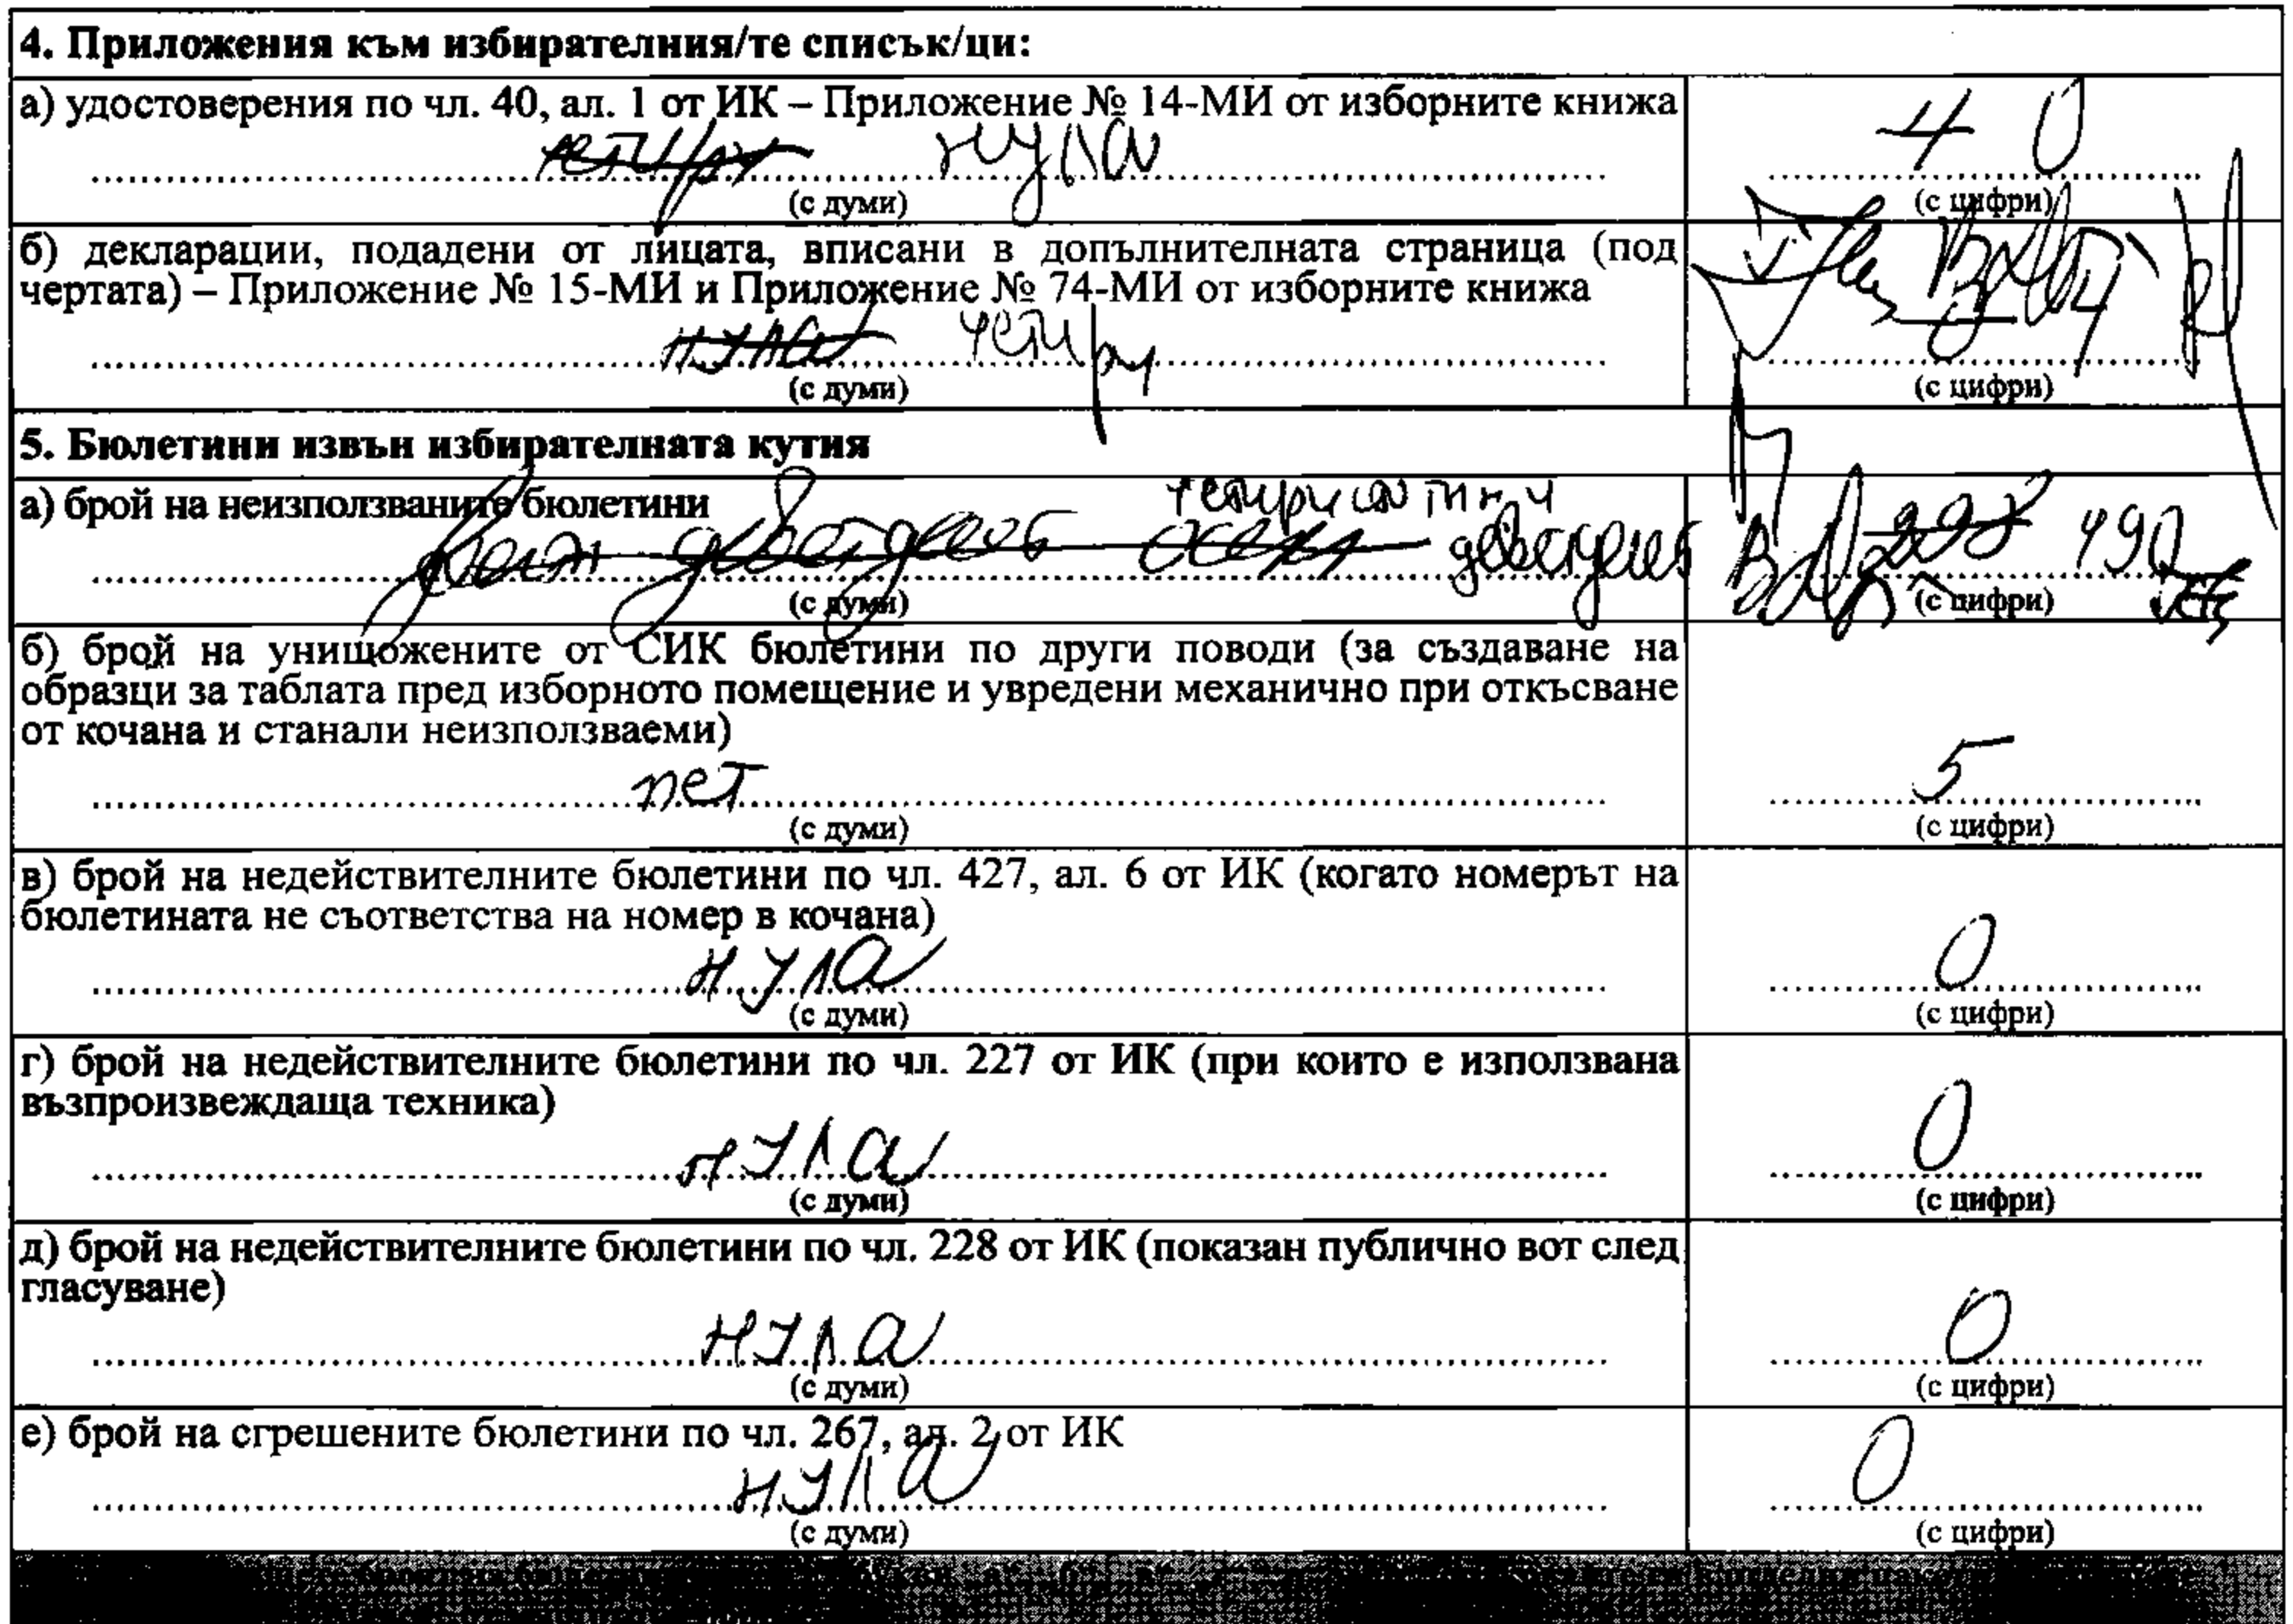 4. Приложения към избирателния/те списък/ци:
а) удостоверения по чл. 40, ал. 1 от ИК – Приложение № 14-МИ от изборните книжа
четири нула 4 0
(с думи) (с цифри)
б) декларации, подадени от лицата, вписани в допълнителната страница (под
чертата) – Приложение № 15-МИ и Приложение № 74-МИ от изборните книжа
нула четири 0 4
(с думи) (с цифри)
5. Бюлетини извън избирателната кутия
а) брой на неизползваните бюлетини
четиристотин и
двадесет осем деветдесет 490
(с думи) (с цифри)
б) брой на унищожените от СИК бюлетини по други поводи (за създаване на
образци за таблата пред изборното помещение и увредени механично при откъсване
от кочана и станали неизползваеми)
пет 5
(с думи) (с цифри)
в) брой на недействителните бюлетини по чл. 427, ал. 6 от ИК (когато номерът на
бюлетината не съответства на номер в кочана)
нула 0
(с думи) (с цифри)
г) брой на недействителните бюлетини по чл. 227 от ИК (при които е използвана
възпроизвеждаща техника)
нула 0
(с думи) (с цифри)
д) брой на недействителните бюлетини по чл. 228 от ИК (показан публично вот след
гласуване)
нула 0
(с думи) (с цифри)
е) брой на сгрешените бюлетини по чл. 267, ал. 2 от ИК
нула 0
(с думи) (с цифри)